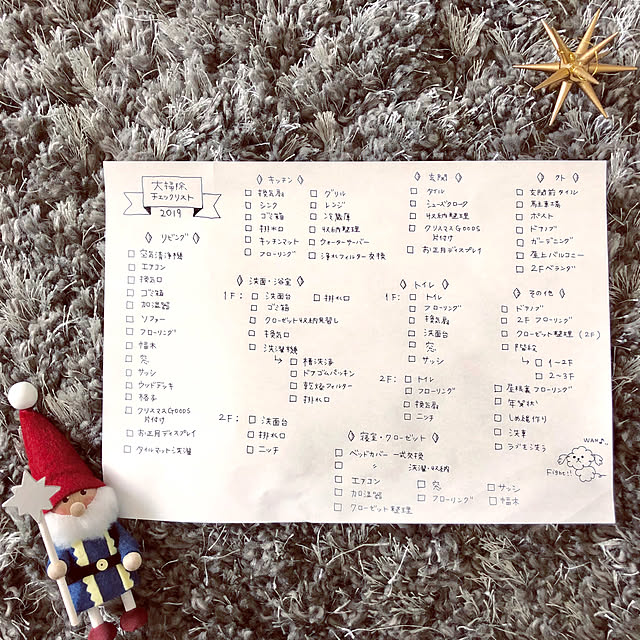 大掃除
チェックリスト
2019
リビング
空気清浄機
エアコン
換気口
ゴミ箱
加湿器
ソファー
フローリング
幅木
窓
サッシ
ウッドデッキ
格子
クリスマスGOODS
片付け
お正月ディスプレイ
タイルマット洗濯
キッチン
換気扇
シンク
ゴミ箱
排水口
キッチンマット
フローリング
グリル
レンジ
冷蔵庫
収納整理
ウォーターサーバー
浄水フィルター交換
洗面・浴室
1F: 洗面台 排水口
ゴミ箱
クローゼット収納見直し
換気口
洗濯機
↳ 槽洗浄
ドアゴムパッキン
乾燥フィルター
排水口
2F: 洗面台
排水口
ニッチ
玄関
タイル
シューズクローク
収納整理
クリスマスGOODS
片付け
お正月ディスプレイ
トイレ
1F: トイレ
フローリング
換気扇
洗面台
窓
サッシ
2F: トイレ
フローリング
換気扇
ニッチ
寝室・クローゼット
ベッドカバー一式交換
〃 洗濯・収納
エアコン
加湿器
クローゼット整理
窓
フローリング
サッシ
幅木
外
玄関前タイル
駐車場
ポスト
ドアノブ
ガーデニング
屋上バルコニー
2Fベランダ
その他
ドアノブ
2F フローリング
クローゼット整理 (2F)
階段
↳ 1〜2F
2〜3F
屋根裏フローリング
年賀状
しめ縄作り
洗車
ラブを洗う
WAN♪
Fight!!